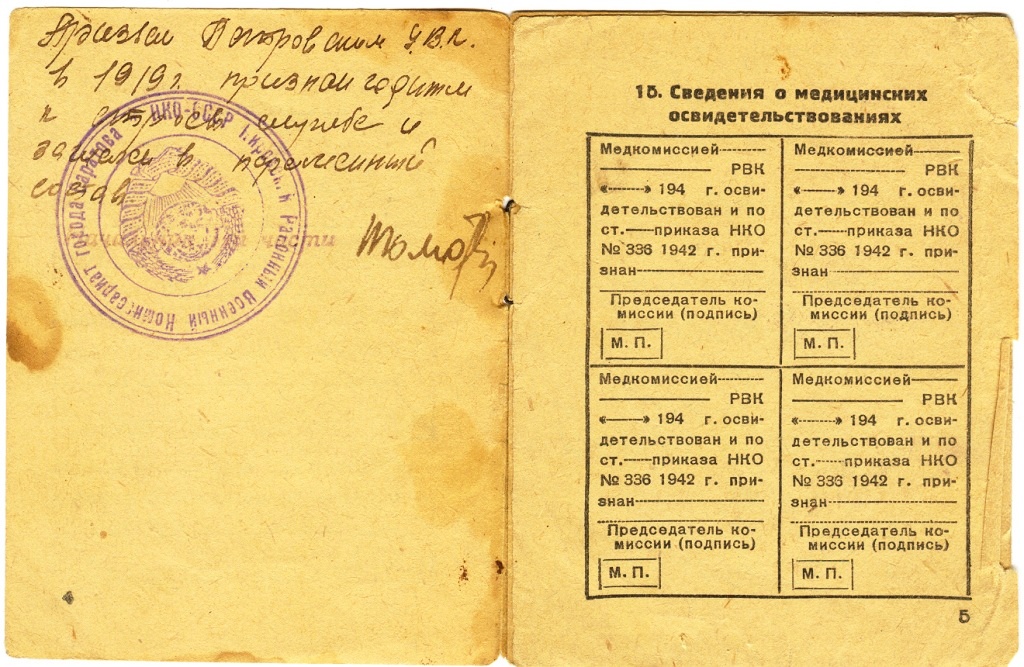 Призван Петровским У.В.К.
в 1919 г. признан годным
к строев службе и
зачислен в переменный
состав
НКО-СССР Районный Военный Комиссариат города Саратова
Начальник части
4
15. Сведения о медицинских
освидетельствованиях
Медкомиссией
РВК
« » 194 г. осви-
детельствован и по
ст. приказа НКО
№ 336 1942 г. при-
знан
Председатель ко-
миссии (подпись)
М. П.
Медкомиссией
РВК
« » 194 г. осви-
детельствован и по
ст. приказа НКО
№ 336 1942 г. при-
знан
Председатель ко-
миссии (подпись)
М. П.
Медкомиссией
РВК
« » 194 г. осви-
детельствован и по
ст. приказа НКО
№ 336 1942 г. при-
знан
Председатель ко-
миссии (подпись)
М. П.
Медкомиссией
РВК
« » 194 г. осви-
детельствован и по
ст. приказа НКО
№ 336 1942 г. при-
знан
Председатель ко-
миссии (подпись)
М. П.
5